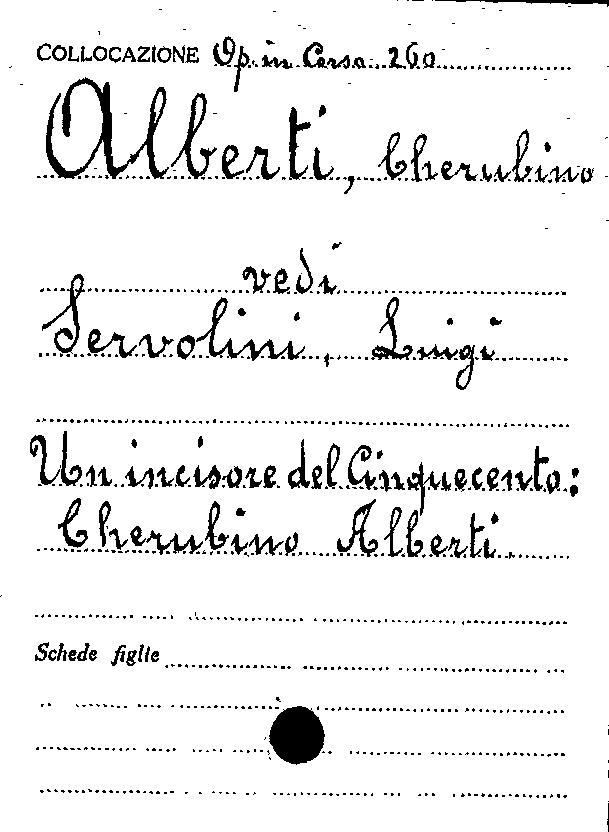 COLLOCAZIONE Op. in Corso 260
Alberti, Cherubino
vedi
Servolini, Luigi
Un incisore del Cinquecento:
Cherubino Alberti.
Schede figlie